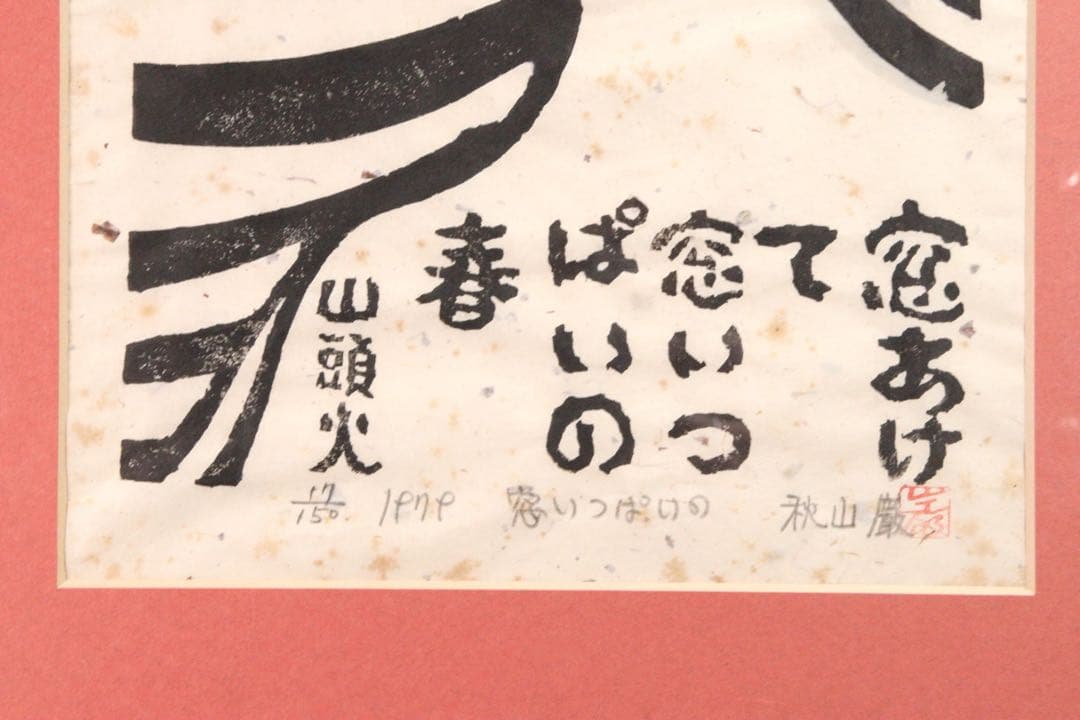 窓あけ
て
窓いつ
ぱいの
春
山頭火
17/150 1979 窓いっぱいの 秋山巌